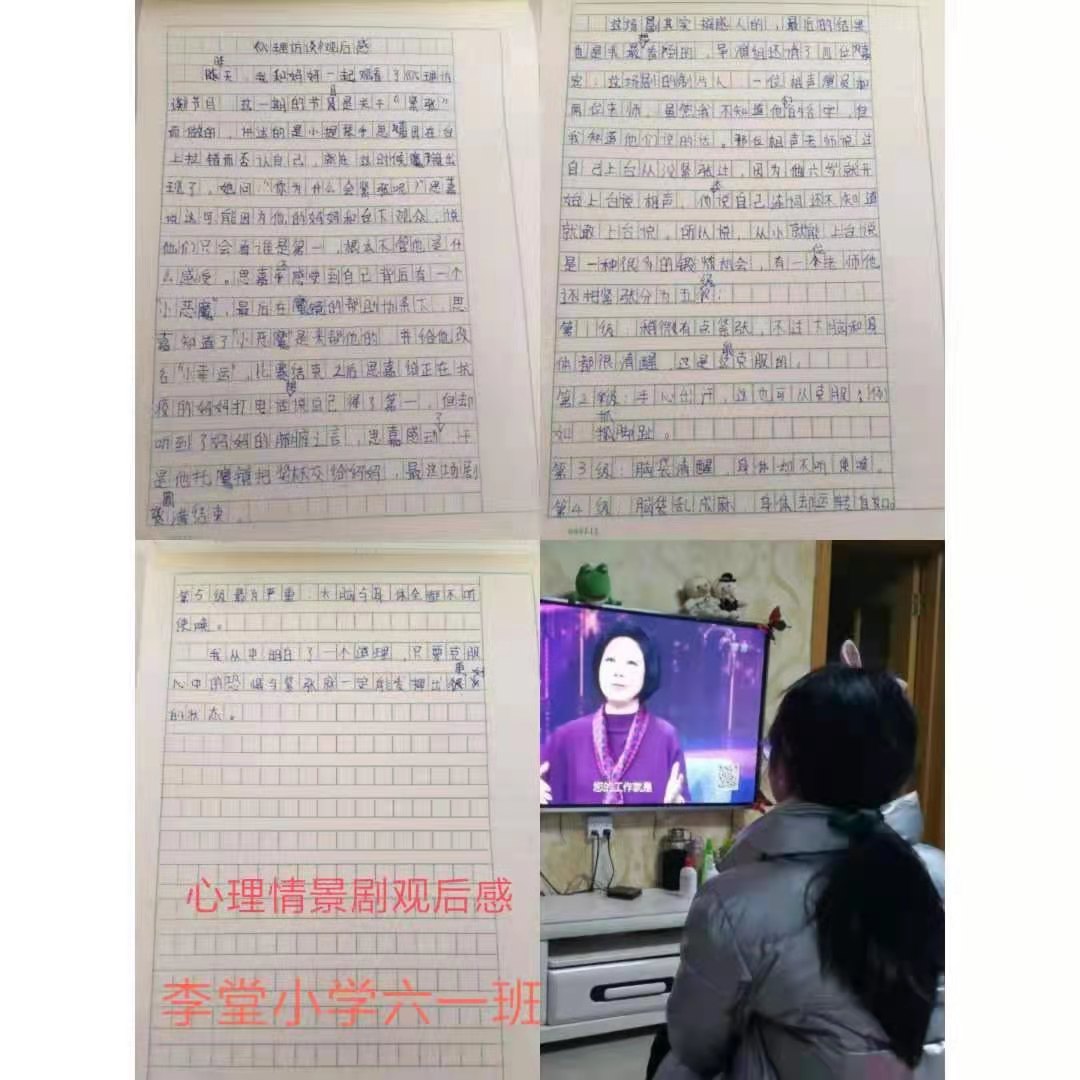 心理访谈观后感
昨天，我和妈妈一起观看了心理访
谈节目，这一期的节目是关于“紧张”
而做的，讲述的是小提琴手思嘉因在台
上拉错而否认自己，就在这时候魔镜出
现了，她问：“你为什么会紧张呢？”思嘉
说这可能因为他的妈妈和台下观众，说
他们只会看谁是第一，根本不管他是什
么感受。思嘉感受到自己背后有一个
“小恶魔”，最后在魔镜的帮助协条下，思
嘉知道了“小恶魔”是来帮他的，并给他改
名“小幸运”，比赛结束之后思嘉给正在抗
疫的妈妈打电话想说自己得了第一，但却
听到了妈妈的肺腑之言，思嘉感动了，于
是他托魔镜把奖杯交给妈妈，最这场剧
圆满结束。
这场剧其实挺感人的，最后的结果
也是我最想看到的，导演组还请了几位嘉
宾：这场剧的制片人，一位相声演员和
两位老师，虽然我不知道他们的名字，但
我知道他们说的话。那位相声老师说过
自己上台从没紧张过，因为他六岁就开
始上台说相声，他说自己连词还不知道
就敢上台说。所以说，从小就能上台说
是一种很多的锻炼机会，有一位老师他
还将紧张分为五级：
第1级：稍微有点紧张，不过大脑和身
体都很清醒，这是最克服的，
第2级：手心出汗，这也可以克服，例
如抓脚趾。
第3级：脑袋清醒，身体却不听使唤。
第4级：脑袋乱成麻，身体却运转自如
第5级最为严重：大脑与身体全都不听
使唤。
我从中明白了一个道理，只要克服
心中的恐惧与紧张就一定能发挥出更好
的状态。
心理情景剧观后感
李堂小学六一班
您的工作就是